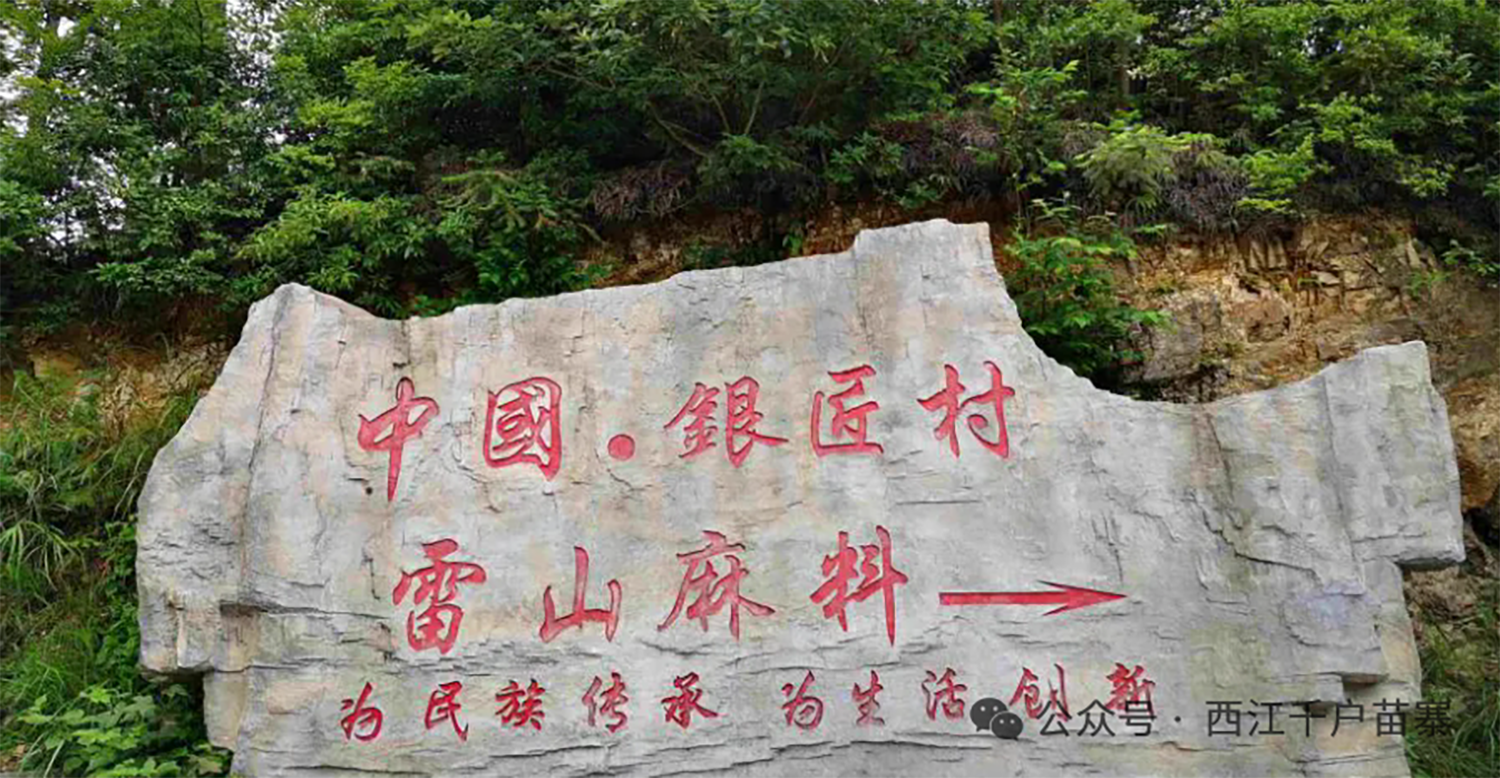 中國·銀匠村
雷山麻料→
为民族传承 为生活创新
公众号·西江千户苗寨